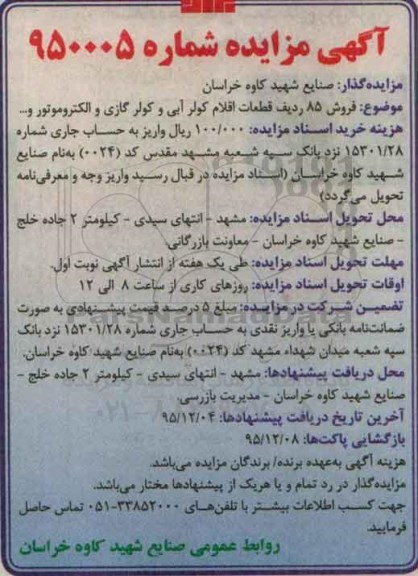 آگهی مزایده شماره ۹۵۰۰۰۵
مزایده‌گذار: صنایع شهید کاوه خراسان
موضوع: فروش ۸۵ ردیف قطعات اقلام کولر آبی و کولر گازی و الکتروموتور و...
هزینه خرید اسناد مزایده: ۱۰۰/۰۰۰ ریال واریز به حساب جاری شماره
۱۵۳۰۱/۲۸ نزد بانک سپه شعبه مشهد مقدس کد (۰۰۲۴) به‌نام صنایع
شهید کاوه خراسان (اسناد مزایده در قبال رسید واریز وجه و معرفی‌نامه
تحویل می‌گردد)
محل تحویل اسناد مزایده: مشهد - انتهای سیدی - کیلومتر ۲ جاده خلج
- صنایع شهید کاوه خراسان - معاونت بازرگانی.
مهلت تحویل اسناد مزایده: طی یک هفته از انتشار آگهی نوبت اول.
اوقات تحویل اسناد مزایده: روزهای کاری از ساعت ۸ الی ۱۲
تضمین شرکت در مزایده: مبلغ ۵ درصد قیمت پیشنهادی به صورت
ضمانت‌نامه بانکی یا واریز نقدی به حساب جاری شماره ۱۵۳۰۱/۲۸ نزد بانک
سپه شعبه میدان شهداء مشهد کد (۰۰۲۴) به‌نام صنایع شهید کاوه خراسان.
محل دریافت پیشنهادها: مشهد - انتهای سیدی - کیلومتر ۲ جاده خلج -
صنایع شهید کاوه خراسان - مدیریت بازرسی.
آخرین تاریخ دریافت پیشنهادها: ۹۵/۱۲/۰۴
بازگشایی پاکت‌ها: ۹۵/۱۲/۰۸
هزینه آگهی به‌عهده برنده/ برندگان مزایده می‌باشد.
مزایده‌گذار در رد تمام و یا هریک از پیشنهادها مختار می‌باشد.
جهت کسب اطلاعات بیشتر با تلفن‌های ۳۳۸۵۲۰۰۰-۰۵۱ تماس حاصل
فرمایید.
روابط عمومی صنایع شهید کاوه خراسان